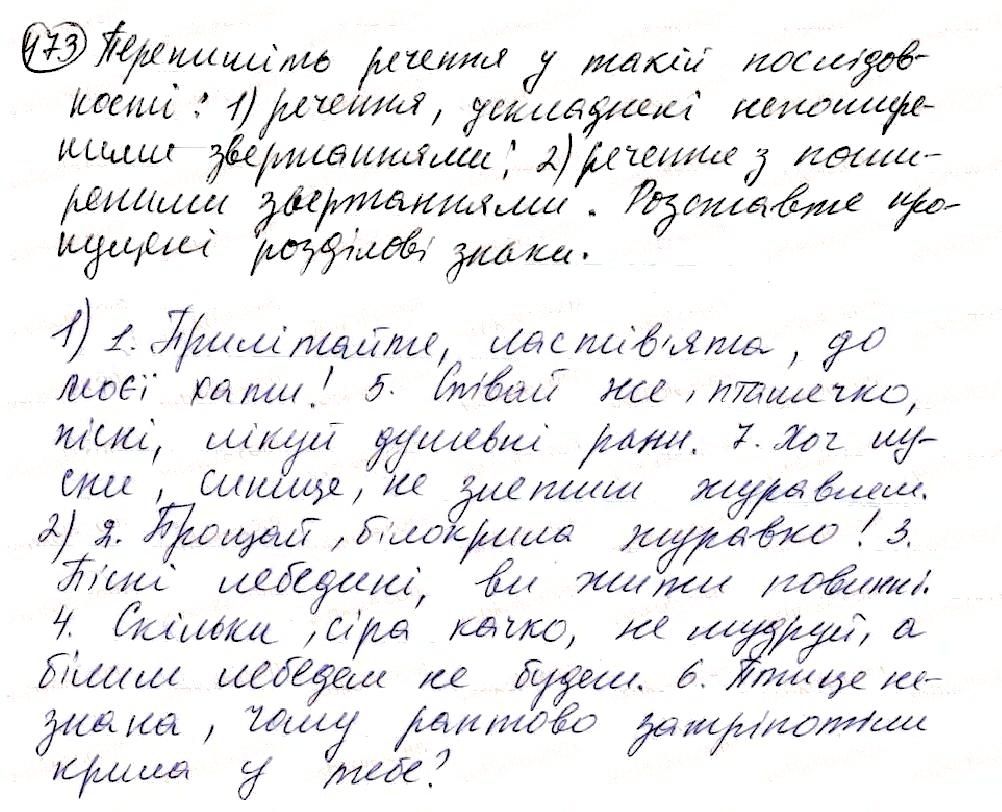 473 Перепишіть речення у такій послідов-
ності: 1) речення, ускладнені непошире-
ними звертаннями; 2) речення з поши-
реними звертаннями. Розставте про-
пущені розділові знаки.
1) 1. Прилітайте, ластів'ята, до
моєї хати! 5. Співай же, пташечко,
пісні, лікуй душевні рани. 7. Хоч лу-
сни, синице, не злетиш журавлем.
2) 2. Прощай, білокрила журавко! 3.
Пісні лебедині, ви жити повинні.
4. Скільки, сіра качко, не мудруй, а
білим лебедем не будеш. 6. Птице не-
знана, чому раптово затріпотіли
крила у тебе?